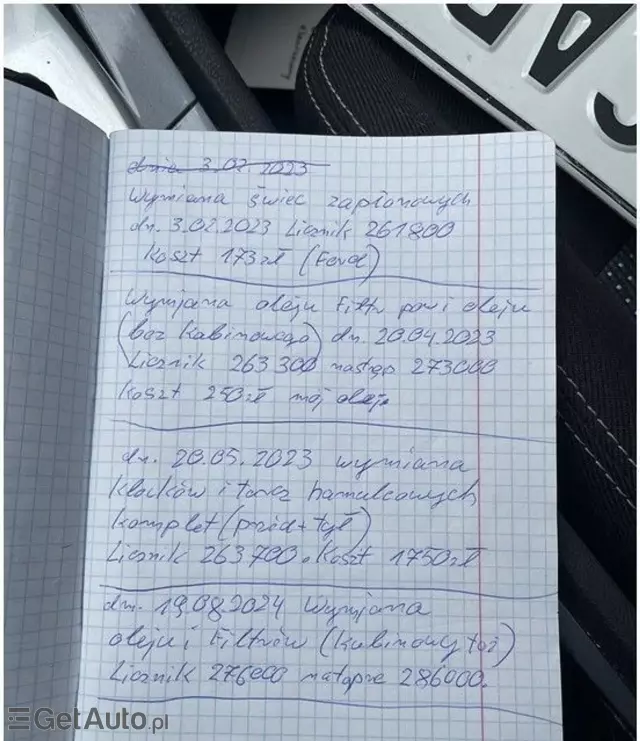 dnia 3.02.2023
Wymiana świec zapłonowych
dn. 3.02.2023 Licznik 261800
Koszt 173zł (Ford)
Wymiana oleju Filtr pow i oleju
(bez Kabinowego) dn. 20.04.2023
Licznik 263300 następ 273000
Koszt 250zł mój olej
dn. 20.05.2023 wymiana
Klocków i tarcz hamulcowych
komplet (przód + tył)
Licznik 263700. Koszt 1750zł
dn. 19.08.2024 Wymiana
oleju i Filtrów (kabinowy też)
Licznik 276000 natąpne 286000.
GetAuto.pl